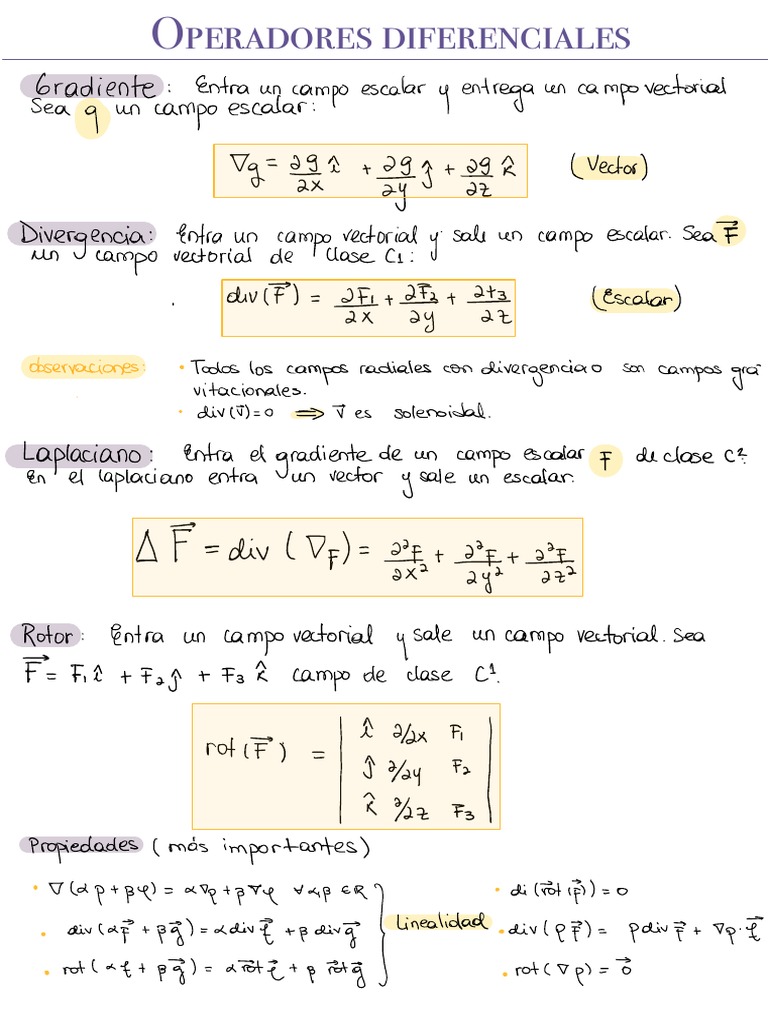 OPERADORES DIFERENCIALES
Gradiente: Entra un campo escalar y entrega un campo vectorial
Sea g un campo escalar:
∇g = ∂g/∂x î + ∂g/∂y ĵ + ∂g/∂z k̂ (Vector)
Divergencia: Entra un campo vectorial y sale un campo escalar. Sea F⃗
un campo vectorial de clase C1:
div(F⃗) = ∂F₁/∂x + ∂F₂/∂y + ∂F₃/∂z (Escalar)
observaciones: • Todos los campos radiales con divergencia 0 son campos gra
vitacionales.
• div(v⃗)=0 ⟹ v⃗ es solenoidal.
Laplaciano: Entra el gradiente de un campo escalar F de clase C².
En el laplaciano entra un vector y sale un escalar.
Δ F⃗ = div (∇F) = ∂²F/∂x² + ∂²F/∂y² + ∂²F/∂z²
Rotor: Entra un campo vectorial y sale un campo vectorial. Sea
F⃗ = F₁ î + F₂ ĵ + F₃ k̂ campo de clase C¹.
rot(F⃗) = | î ∂/∂x F₁ |
| ĵ ∂/∂y F₂ |
| k̂ ∂/∂z F₃ |
Propiedades (más importantes)
• ∇(αρ + βφ) = α∇ρ + β∇φ ∀α,β ∈ℝ
• div(αf⃗ + βg⃗) = α div f⃗ + β div g⃗
• rot(αf + βg⃗) = α rot f⃗ + β rot g⃗
Linealidad
• di(rot(F⃗)) = 0
• div(ρF⃗) = ρ div F⃗ + ∇ρ · f⃗
• rot(∇ρ) = 0⃗